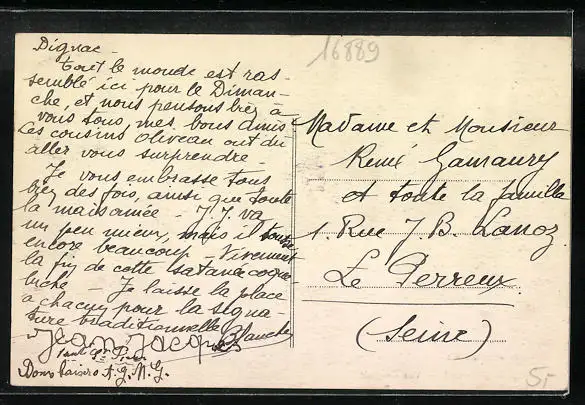 Dignac -
Tout le monde est ras-
semblé ici pour le Diman-
che, et nous pensons bien à
vous tous, mes bons amis
Les cousins Oliveau ont dû
aller vous surprendre -
Je vous embrasse tous
bien des fois, ainsi que toute
la maisonnée - J.J. va
un peu mieux, mais il tousse
encore beaucoup - Vivement
la fin de cette satanée coque-
luche - Je laisse la place
à chacun pour la signa-
ture traditionnelle
Blanche
Jean Jacques
Bons baisers A. G. M. G.
16889
Madame et Monsieur
René Gamaury
et toute la famille
1. Rue J. B. Lanoz
Le Perreux
(Seine)
5.-